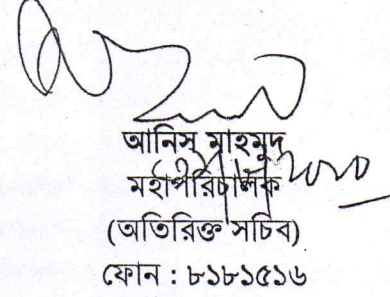 আনিস মাহমুদ
মহাপরিচালক
(অতিরিক্ত সচিব)
ফোন : ৮১৮১৫১৬